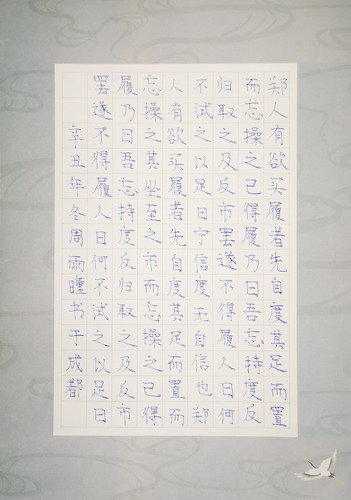 郑人有欲买履者先自度其足而置
而忘操之已得履乃曰吾忘持度反
归取之及反市罢遂不得履人曰何
不试之以足曰宁信度无自信也郑
人有欲买履者先自度其足而置而
忘操之其坐至之市而忘操之已得
履乃曰吾忘持度反归取之及反市
罢遂不得履人曰何不试之以足曰
辛丑年冬周雨瞳书于成都